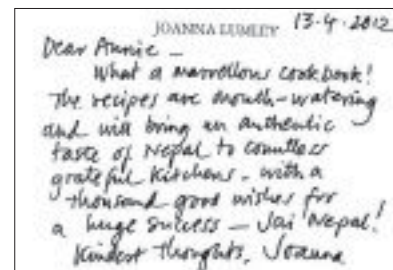 JOANNA LUMLEY 13-4-2012
Dear Annie –
What a marvellous cookbook!
The recipes are mouth-watering
and will bring an authentic
taste of Nepal to countless
grateful kitchens. with a
thousand good wishes for
a huge success – Jai Nepal!
Kindest Thoughts, Joanna